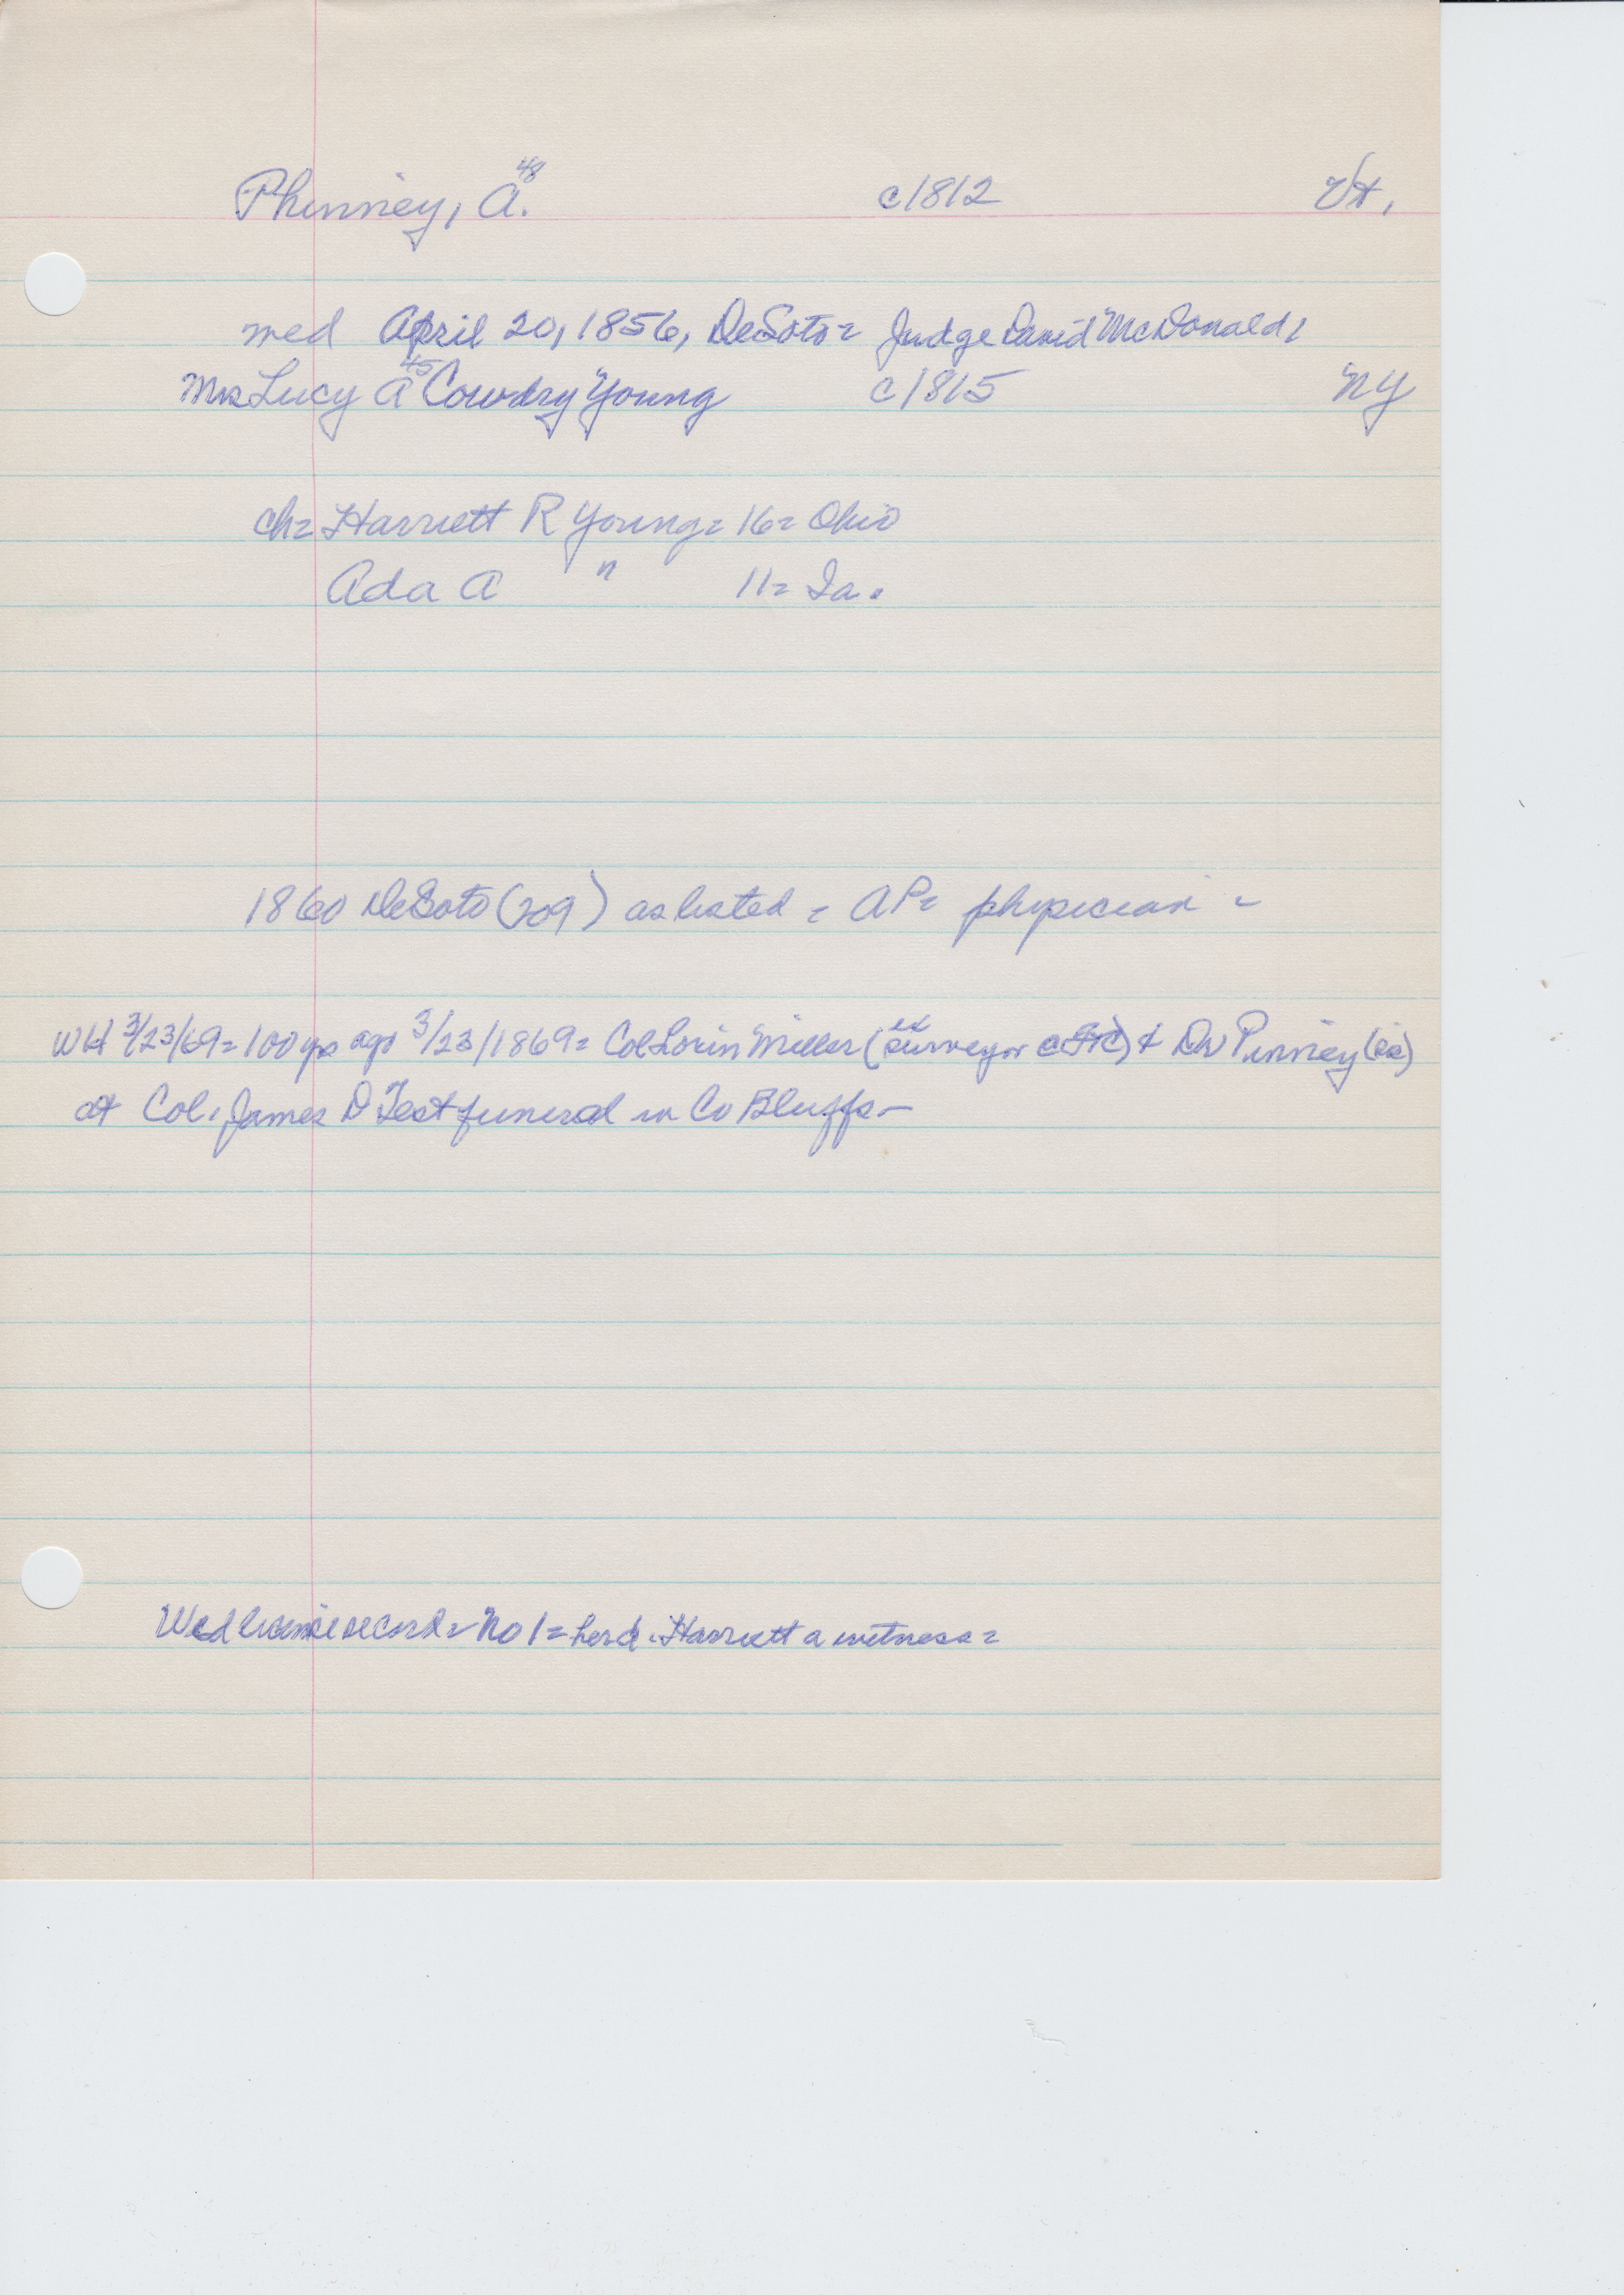 Phinney, A. 48 c1812 Vt.
wed April 20, 1856, DeSoto = Judge David McDonald,
Mrs Lucy A 45 Cowdry Young c1815 NY
ch= Harriett R Young= 16= Ohio
Ada A " 11= Ia.
1860 DeSoto (209) as listed = AP= physician =
WH 3/23/69= 100 yrs ago 3/23/1869= Col Lorin Miller (ex surveyor & Dr Pinney
at Col. James D Test funeral in Co Bluffs—
Wed license record= No 1= her d. Harriett a witness=